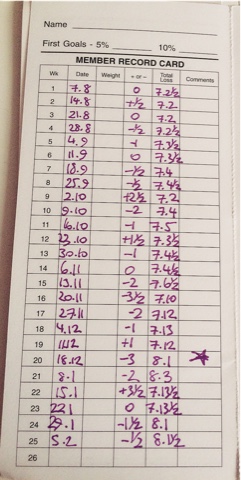 Name
First Goals - 5% 10%
MEMBER RECORD CARD
Wk Date Weight + or - Total Loss Comments
1 7.8 0 7.2½
2 14.8 +½ 7.2
3 21.8 0 7.2
4 28.8 -½ 7.2½
5 4.9 -1 7.3½
6 11.9 0 7.3½
7 18.9 -½ 7.4
8 25.9 -½ 7.4½
9 2.10 +2½ 7.2
10 9.10 -2 7.4
11 16.10 -1 7.5
12 23.10 +1½ 7.3½
13 30.10 -1 7.4½
14 6.11 0 7.4½
15 13.11 -2 7.6½
16 20.11 -3½ 7.10
17 27.11 -2 7.12
18 4.12 -1 7.13
19 11.12 +1 7.12
20 18.12 -3 8.1
21 8.1 -2 8.3
22 15.1 +3½ 7.13½
23 22.1 0 7.13½
24 29.1 -1½ 8.1
25 5.2 -½ 8.1½
26